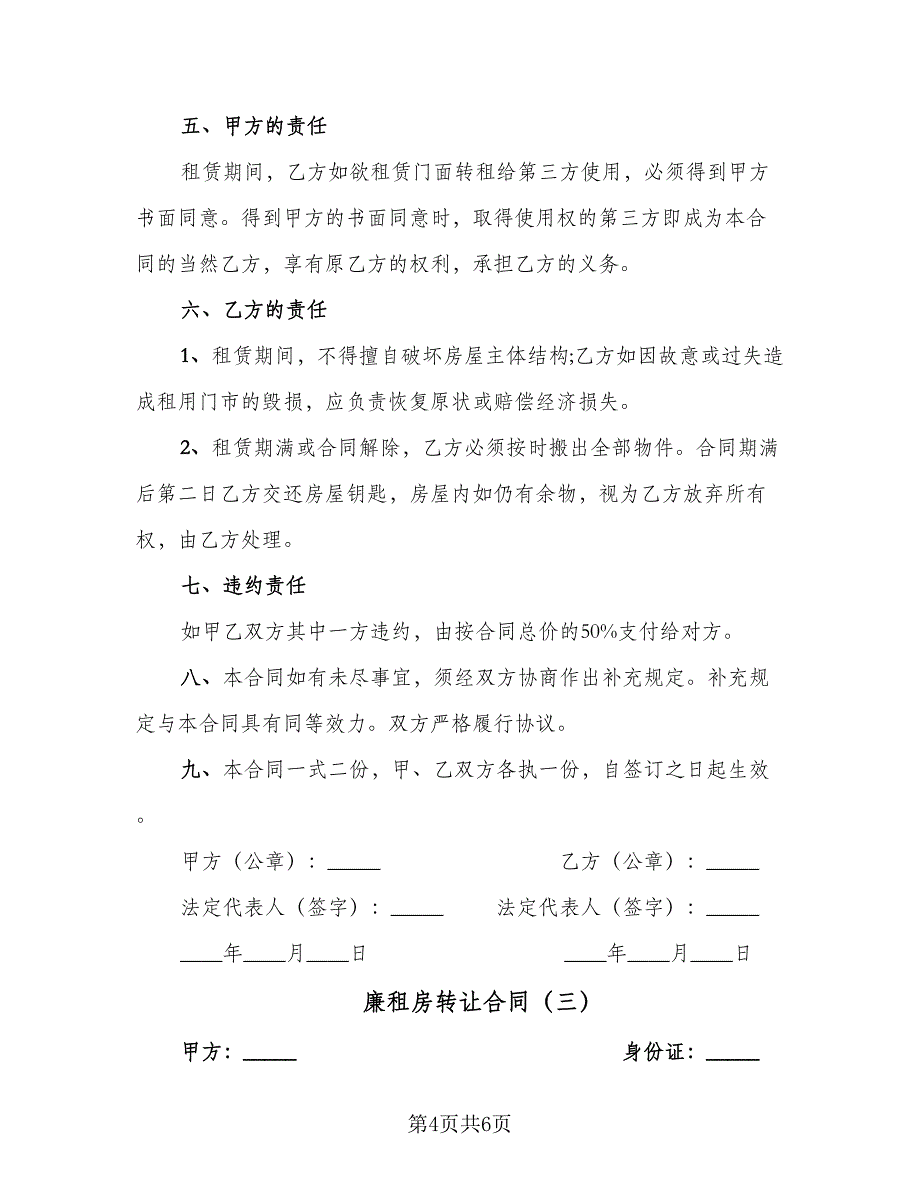 五、甲方的责任
租赁期间，乙方如欲租赁门面转租给第三方使用，必须得到甲方
书面同意。得到甲方的书面同意时，取得使用权的第三方即成为本合
同的当然乙方，享有原乙方的权利，承担乙方的义务。
六、乙方的责任
1、租赁期间，不得擅自破坏房屋主体结构;乙方如因故意或过失造
成租用门市的毁损，应负责恢复原状或赔偿经济损失。
2、租赁期满或合同解除，乙方必须按时搬出全部物件。合同期满
后第二日乙方交还房屋钥匙，房屋内如仍有余物，视为乙方放弃所有
权，由乙方处理。
七、违约责任
如甲乙双方其中一方违约，由按合同总价的50%支付给对方。
八、本合同如有未尽事宜，须经双方协商作出补充规定。补充规
定与本合同具有同等效力。双方严格履行协议。
九、本合同一式二份，甲、乙双方各执一份，自签订之日起生效
。
甲方（公章）：_____ 乙方（公章）：_____
法定代表人（签字）：_____ 法定代表人（签字）：_____
____年____月____日 ____年____月____日
廉租房转让合同（三）
甲方：_____ 身份证：_____
第4页共6页